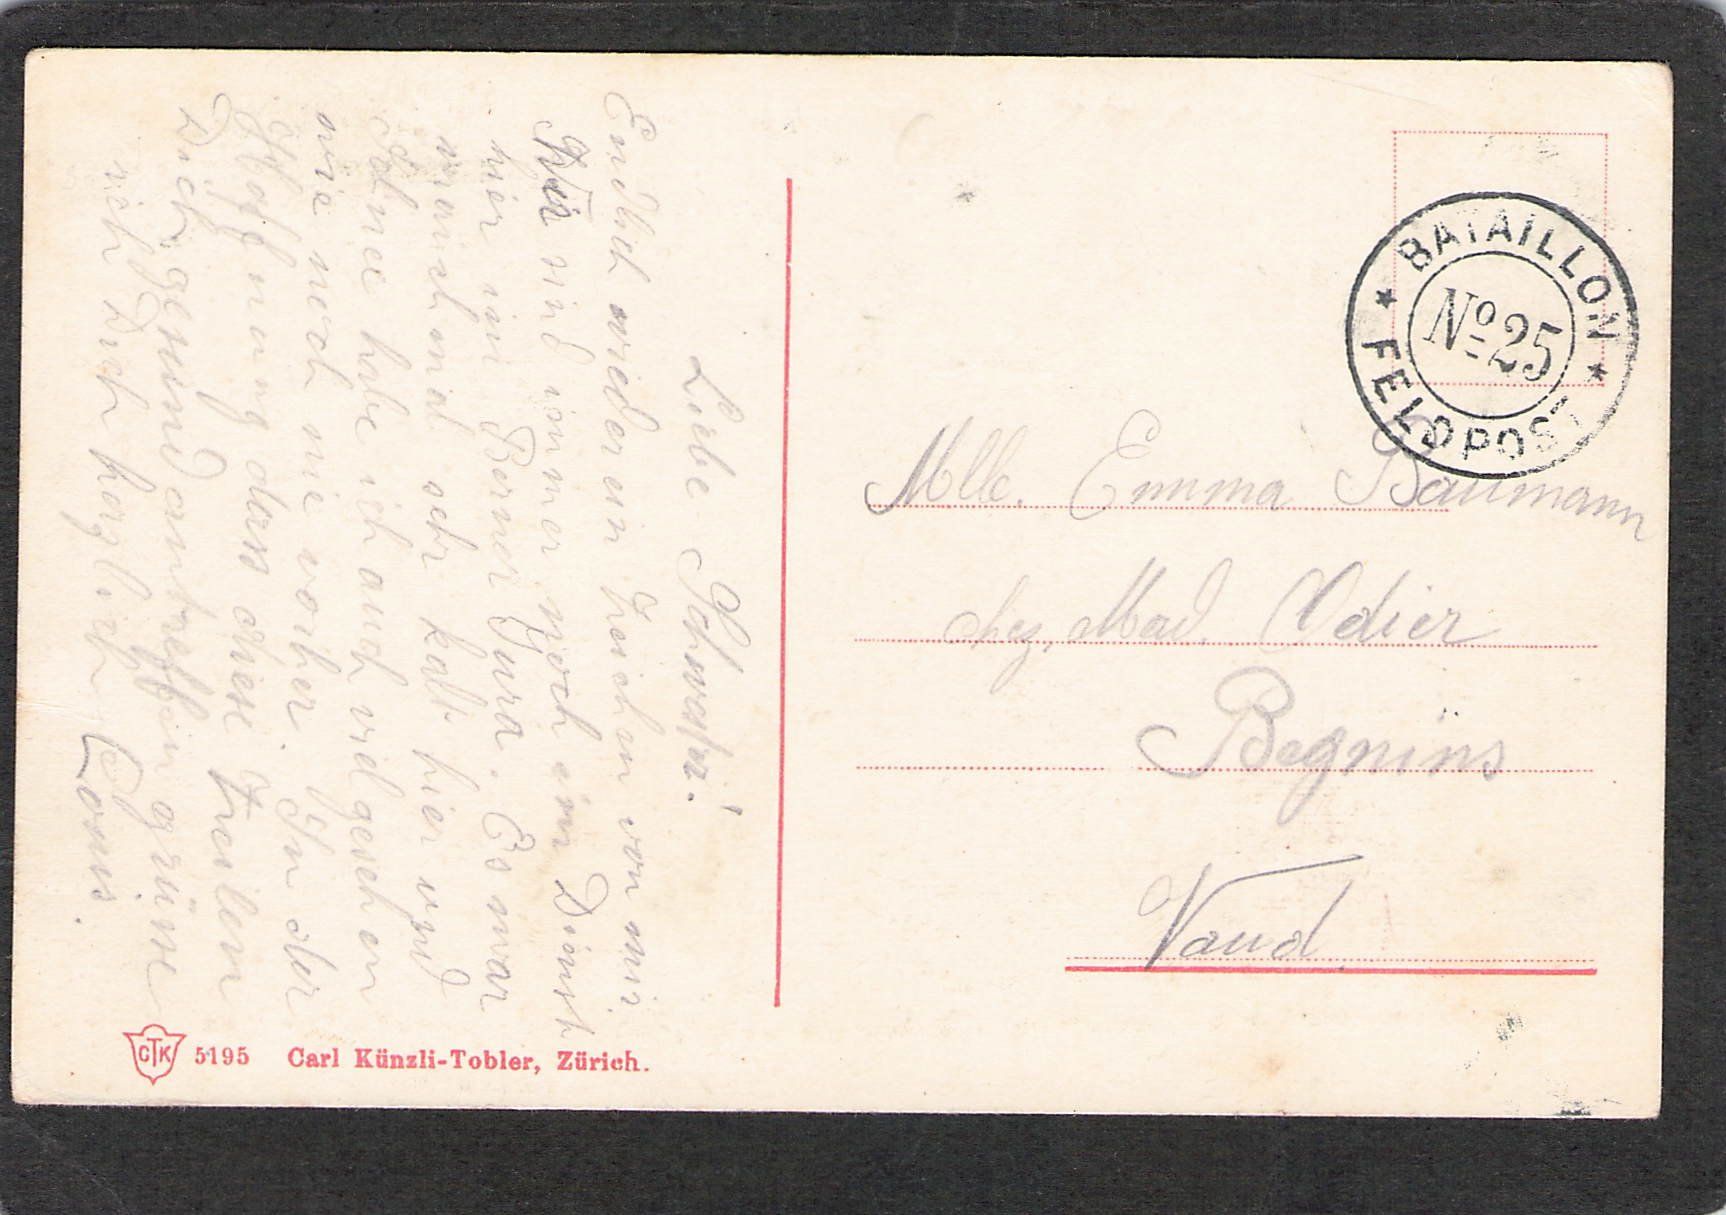 Liebe Schwester!
Endlich wieder ein Zeichen von mir.
Wir sind immer noch im Dienst
hier im Berner Jura. Es war
manchmal sehr kalt hier und
Schnee habe ich auch viel gesehen
wie noch nie vorher. In der
Hoffnung dass diese Zeilen
Dich gesund antreffen grüsse
ich Dich herzlich Louis.
BATAILLON
No 25
FELDPOST
Mlle. Emma Baumann
chez, Mad. Odier
Begnins
Vaud.
CTK 5195 Carl Künzli-Tobler, Zürich.